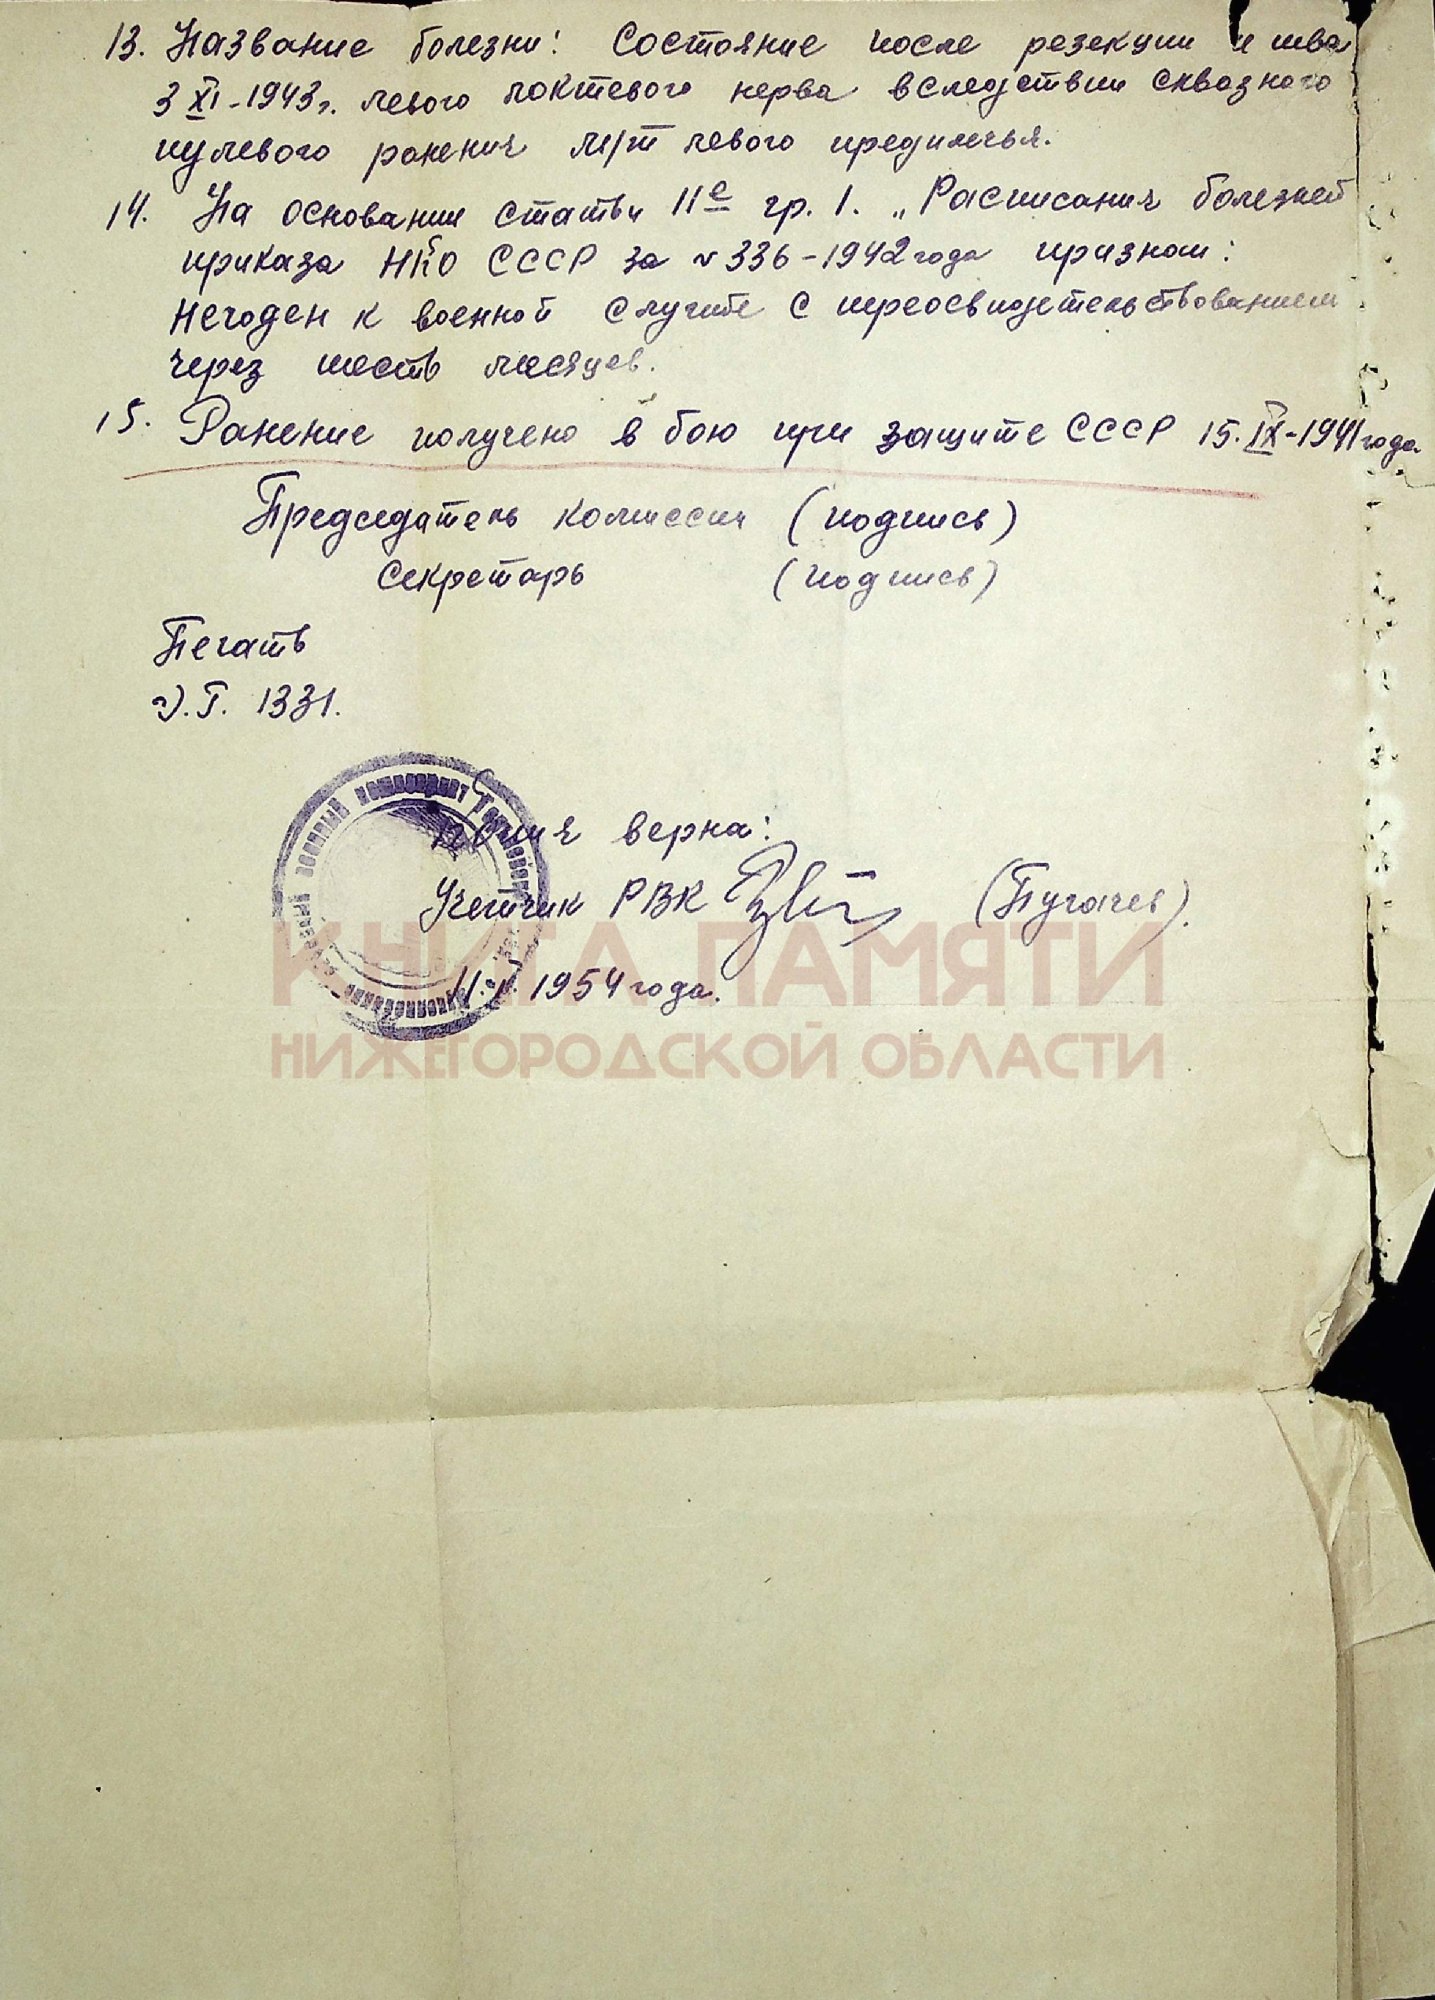 13. Название болезни: Состояние после резекции и шва
3 XI-1943г. левого локтевого нерва вследствии сквозного
пулевого ранения м/т левого предплечья.
14. На основании статьи 11е гр. 1. „Расписания болезней
приказа НКО СССР за № 336-1942 года признан:
Негоден к военной службе с переосвидетельствованием
через шесть месяцев.
15. Ранение получено в бою при защите СССР 15.IX-1941 года.
Председатель комиссии (подпись)
Секретарь (подпись)
Печать
Э.Г. 1331.
Копия верна:
Учетчик РВК (Пугачев).
1954 года.
КНИГА ПАМЯТИ
НИЖЕГОРОДСКОЙ ОБЛАСТИ